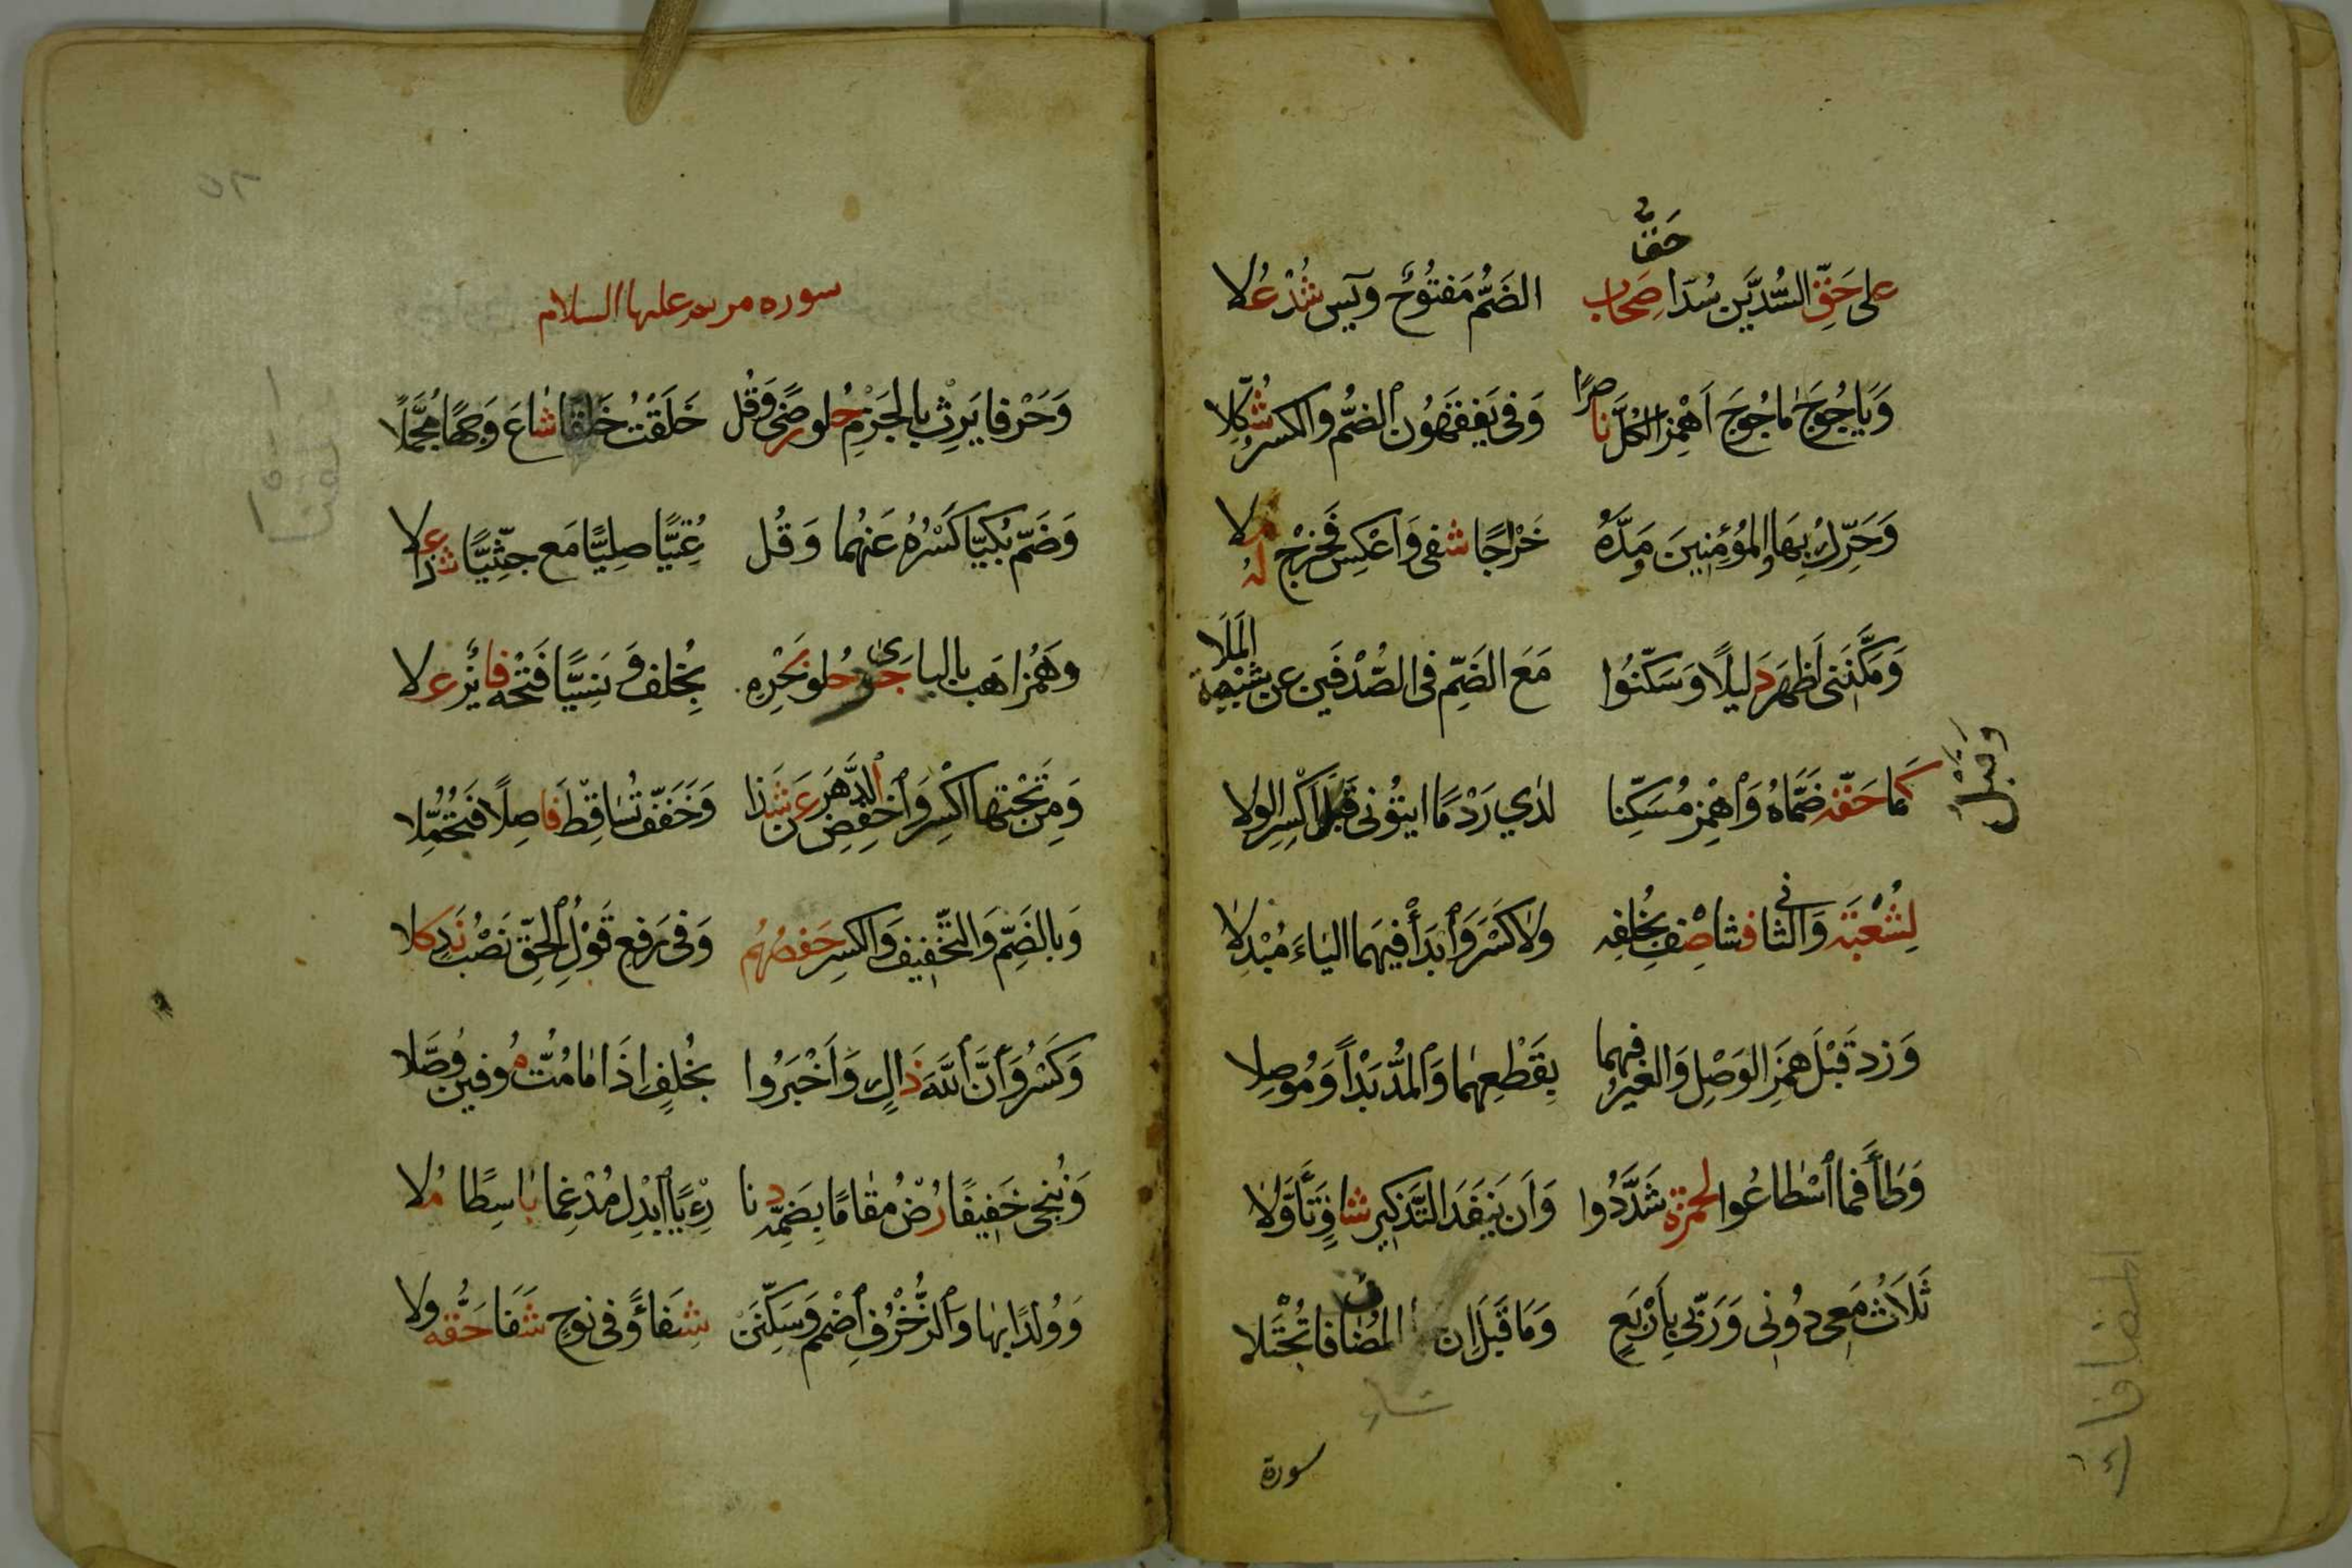 حَقٌّ
على حَقِّ السُّدَّيْنِ سُدًّا صِحَابِ الضَّمُّ مَفْتُوحٌ ويٰسٓ شُدْ عُلا
وَيَاجُوجَ مَاجُوجَ اَهْمِزِ الْكُلَّ نَاصِرًا وَفى يَفْقَهُونَ الضُّمُّ والكسرُ شُكِّلا
وَحَرِّكْ بِهَا والمُؤمِنِينَ وَمَدَّهُ خَرَاجًا شفى وَاعْكِسْ فَخَرْجُ لَهُ مُلا
وَمَكَّنَنى اَظْهَرْ دَليلًا وَسَكَّنُوا مَعَ الضَّمِّ فى الصُّدْفَينِ عن شُعْبَةَ الْمَلَا
كَمَا حَقُّهُ ضَمَّاهُ وَاهْمِزْ مُسَكِّنا لدٰي رَدْمًا ايتُونى قَبْلُ اكْسِرِ الوِلا
وَقَبْلُ
لِشُعْبَةَ وَالثانى فشا صِفْ بِخُلفِهِ ولاٰ كَسْرَ وَابْدَأْ فِيهِمَا اليَاءَ مُبْدِلاٰ
وَزِدْ قَبْلَ هَمْزِ الوَصْلِ وَالغَيْرُ فيهما بِقَطْعِهِمَا وَالمَدُّ بَدْأً وَمُوصِلا
وَطَأْ فَمَا اسْطَاعُوا لحمْزةَ شَدَّدُوا وَاَن يَنفَدَ التَّذكِيرُ شَافٍ تَأَوَّلاٰ
ثَلَاثٌ مَعى دُونى وَرَبّى بِأَرْبَعٍ وَمَا قَبلَ اِن المُضَافَاتُ تُجْتَلا
سورة
سوره مريم عليها السلام
وَحَرْفا يَرِثْ بِالجَزْمِ حُلو رِضًى وَقُل خَلَقْتُ خَلَقْنَا شَاعَ وَجْهًا مُجَمَّلًا
وَضَمّ بُكِيًّا كَسْرُهُ عَنهُما وَقُل عُتِيًّا صِلِيًّا مَع جِثِيًّا شَذًا عَلا
وهَمْزُ اَهَبْ باليا جَرىٰ حُلو بَحْرِهِ بِخُلف وَنَسِيًّا فَتْحُه فائزٌ عَلا
وَمِنْ تَحْتِهَا اكْسِر وَاخْفِضِ الدَّهْرَ عَن شَذا وَخَفَّ تُسَاقِطْ فَاصِلًا فَتُحُمِّلا
وَبالضَمِّ وَالتّخْفِيفِ وَالكسرِ حَفصُهُم وَفى رَفعِ قَوْلُ الْحَقِّ نَصْبُ نَدٍ كَلا
وَكَسْرُ وَاَنَّ اللهَ ذَاكٍ وَاَخْبَرُوا بِخُلفٍ اِذَا مَا مُتُّ مُوفينَ وُصَّلا
وَنُنجى خَفِيفًا رُضْ مُقَامًا بِضَمِّهِ دنا رِءْيًا اَبْدِلْ مُدْغِمًا بَاسِطًا مُلا
وَوُلدًا بِهَا وَالزُّخْرُفِ اضْمُمْ وَسَكِّنَنْ شِفَاءً وَفى نوحٍ شَفَا حَقُّهُ وِلا